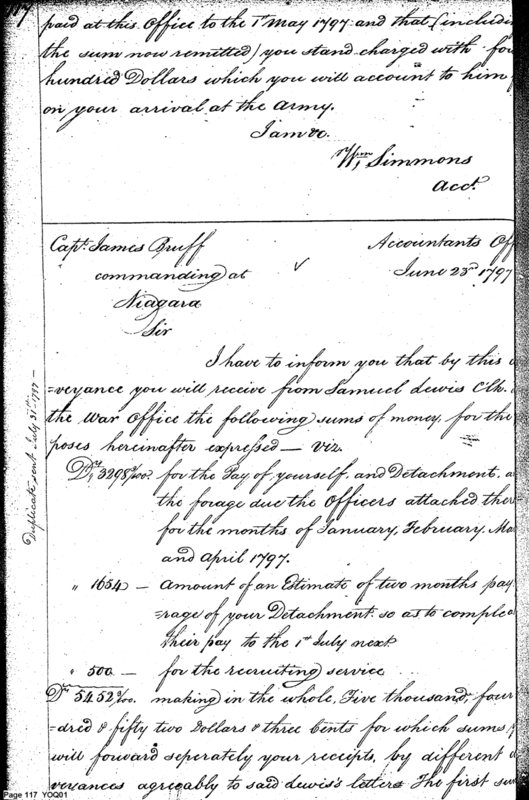 117
paid at this Office to the 1st May 1797 and that (includin
the sum now remitted) you stand charged with fou
hundred Dollars which you will account to him f
on your arrival at the Army.
I am &c.
Wm. Simmons
Acct.
Capt. James Bruff
Accountants Off
commanding at
June 23rd 1797
Niagara
Sir
I have to inform you that by this c
=veyance you will receive from Samuel Lewis Clk.
the War Office the following sums of money, for the
poses hereinafter expressed — Viz.
for the Pay of yourself and Detachment, a
the forage due the Officers attached ther
for the months of January, February, Ma
and April 1797.
" 1654 — Amount of an Estimate of two months pay
=rage of your Detachment so as to comple
their pay to the 1st July next
" 500 — for the recruiting service
making in the whole, Five thousand, four
=dred & fifty two Dollars & three Cents for which sums,
will forward seperately your receipts, by different
veyances agreeably to said Lewis's letters The first
Duplicate sent July 31st 1797 —
Page 117 YOQ01